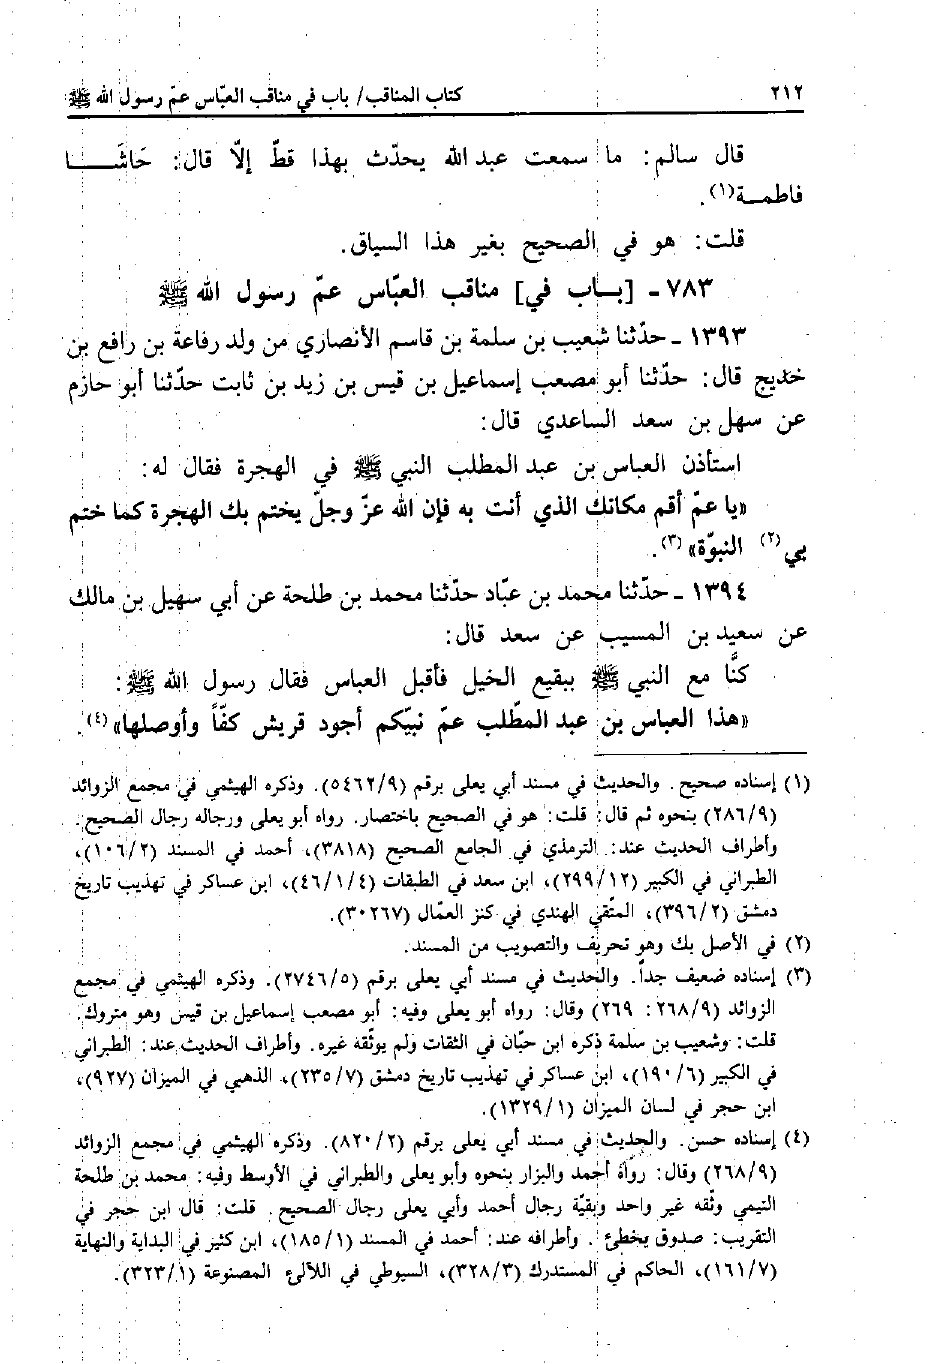 ٢١٢ كتاب المناقب/ باب في مناقب العبّاس عمّ رسول الله ﷺ
قال سالم: ما سمعت عبد الله يحدّث بهذا قطّ إلّا قال: حَاشَــــا
فاطمــة(١).
قلت: هو في الصحيح بغير هذا السياق.
٧٨٣ ـ [بــاب في] مناقب العبّاس عمّ رسول الله ﷺ
١٣٩٣ ـ حدّثنا شعيب بن سلمة بن قاسم الأنصاري من ولد رفاعة بن رافع بن
خديج قال: حدّثنا أبو مصعب إسماعيل بن قيس بن زيد بن ثابت حدّثنا أبو حازم
عن سهل بن سعد الساعدي قال:
استأذن العباس بن عبد المطلب النبي ﷺ في الهجرة فقال له:
«يا عمّ أقم مكانك الذي أنت به فإن الله عزّ وجلّ يختم بك الهجرة كما ختم
بي (٢) النبوّة» (٣).
١٣٩٤ ـ حدّثنا محمد بن عبّاد حدّثنا محمد بن طلحة عن أبي سهيل بن مالك
عن سعيد بن المسيب عن سعد قال:
كنَّا مع النبي ﷺ ببقيع الخيل فأقبل العباس فقال رسول الله ﷺ:
«هذا العباس بن عبد المطّلب عمّ نبيّكم أجود قريش كفّاً وأوصلها» (٤).
(١) إسناده صحيح. والحديث في مسند أبي يعلى برقم (٥٤٦٢/٩). وذكره الهيثمي في مجمع الزوائد
(٢٨٦/٩) بنحوه ثم قال: قلت: هو في الصحيح باختصار. رواه أبو يعلى ورجاله رجال الصحيح.
وأطراف الحديث عند: الترمذي في الجامع الصحيح (٣٨١٨)، أحمد في المسند (١٠٦/٢)،
الطبراني في الكبير (٢٩٩/١٢)، ابن سعد في الطبقات (٤٦/١/٤)، ابن عساكر في تهذيب تاريخ
دمشق (٣٩٦/٢)، المتّقي الهندي في كنز العمّال (٣٠٢٦٧).
(٢) في الأصل بك وهو تحريف والتصويب من المسند.
(٣) إسناده ضعيف جداً. والحديث في مسند أبي يعلى برقم (٢٧٤٦/٥). وذكره الهيثمي في مجمع
الزوائد (٢٦٨/٩: ٢٦٩) وقال: رواه أبو يعلى وفيه: أبو مصعب إسماعيل بن قيس وهو متروك.
قلت: وشعيب بن سلمة ذكره ابن حبّان في الثقات ولم يوثّقه غيره. وأطراف الحديث عند: الطبراني
في الكبير (١٩٠/٦)، ابن عساكر في تهذيب تاريخ دمشق (٢٣٥/٧)، الذهبي في الميزان (٩٢٧)،
ابن حجر في لسان الميزان (١٣٢٩/١).
(٤) إسناده حسن. والحديث في مسند أبي يعلى برقم (٨٢٠/٢). وذكره الهيثمي في مجمع الزوائد
(٢٦٨/٩) وقال: رواه أحمد والبزار بنحوه وأبو يعلى والطبراني في الأوسط وفيه: محمد بن طلحة
التيمي وثّقه غير واحد وبقيّة رجال أحمد وأبي يعلى رجال الصحيح. قلت: قال ابن حجر في
التقريب: صدوق يخطئ. وأطرافه عند: أحمد في المسند (١٨٥/١)، ابن كثير في البداية والنهاية
(١٦١/٧)، الحاكم في المستدرك (٣٢٨/٣)، السيوطي في اللآلئ المصنوعة (٣٢٣/١).